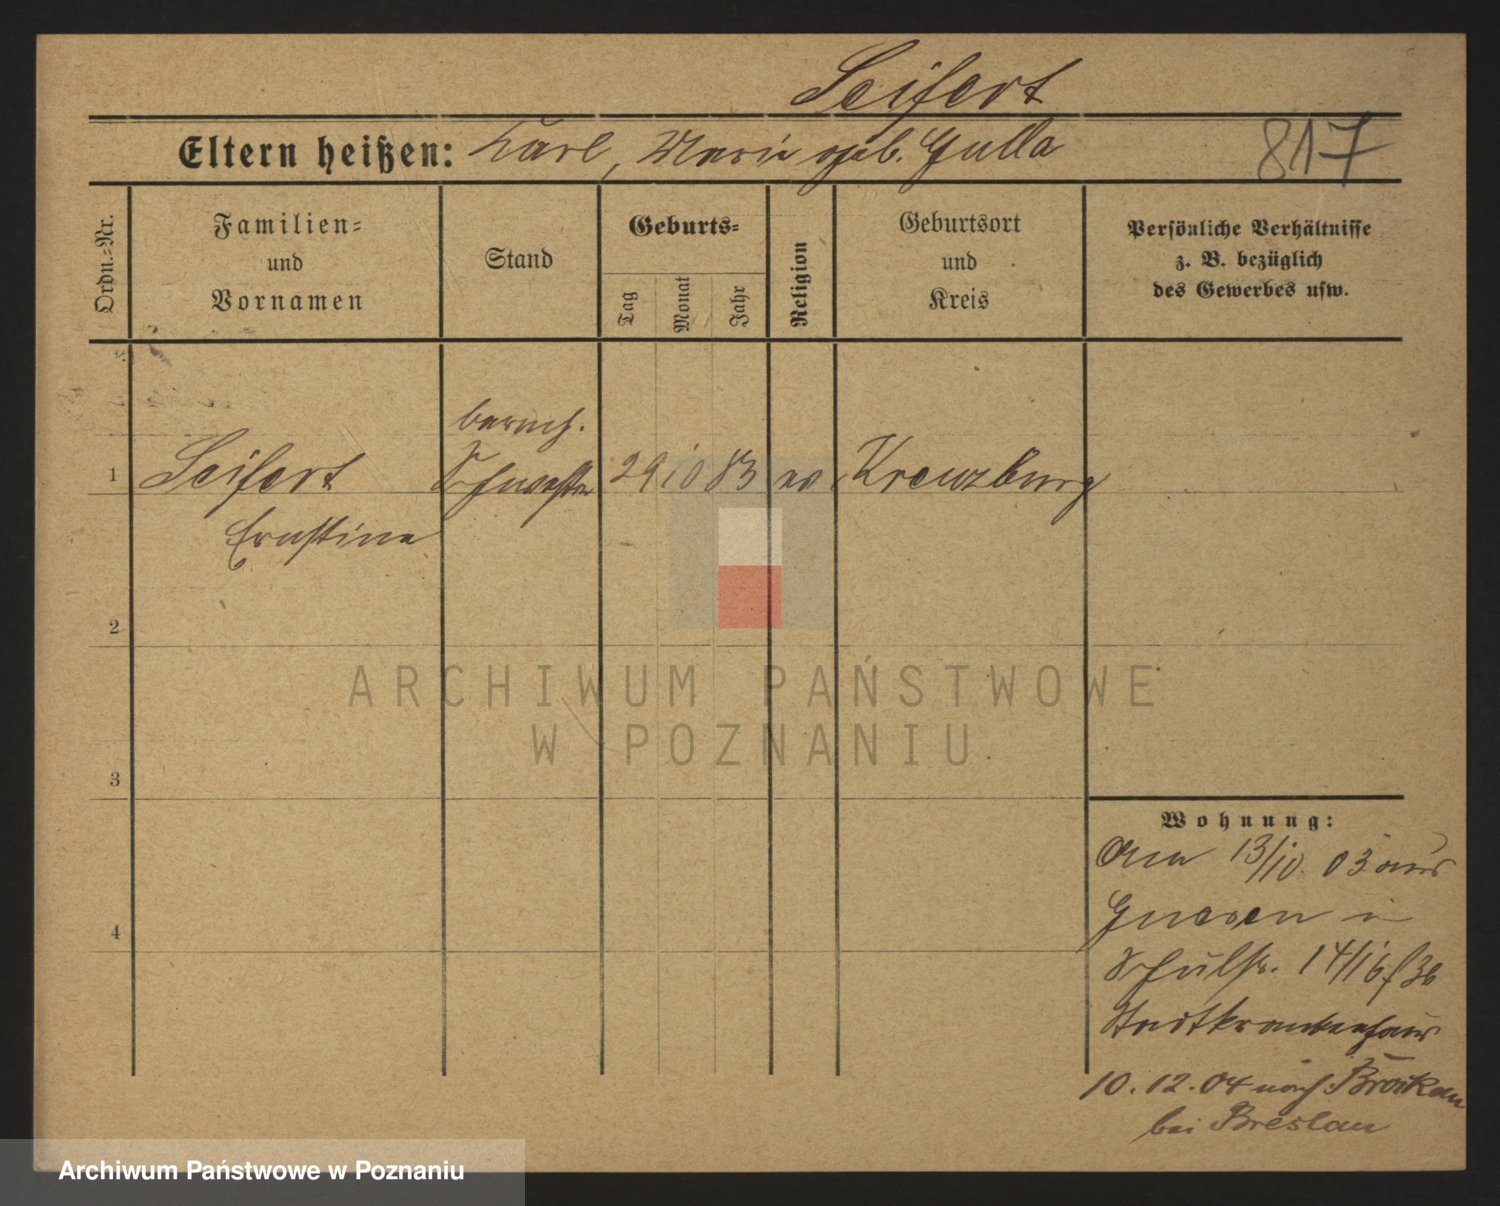 Seifert
Eltern heißen: Karl, Marie geb. Gulla
817
Ordn.-Nr.
Familien-
und
Vornamen
Stand
Geburts-
Tag
Monat
Jahr
Religion
Geburtsort
und
Kreis
Persönliche Verhältnisse
z. B. bezüglich
des Gewerbes usw.
1
Seifert
Ernstine
barmh.
Schwester
29 10 83 ev Kreuzburg
2
ARCHIWUM PAŃSTWOWE
W POZNANIU
3
4
Wohnung:
13/10. 03 aus
Gnesen in
Schulstr. 14/16
Stadtkrankenhaus
10. 12. 04 nach Brockau
bei Breslau
Archiwum Państwowe w Poznaniu